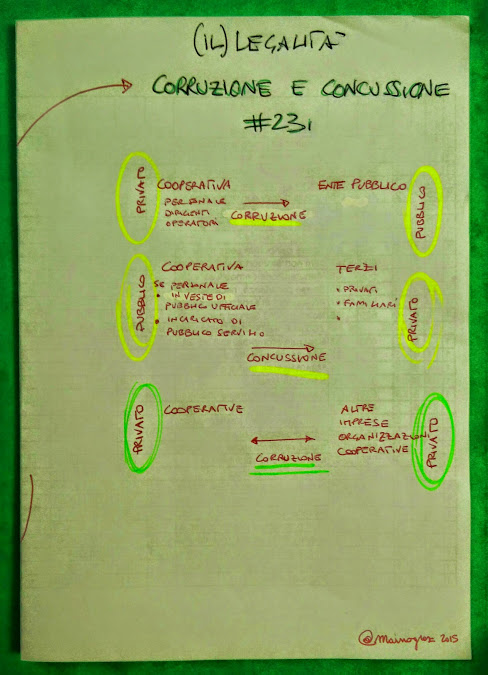 (IL) LEGALITÀ
CORRUZIONE E CONCUSSIONE
#231
PRIVATO
COOPERATIVA
PERSONALE
DIRIGENTI
OPERATORI
CORRUZIONE
ENTE PUBBLICO
PUBBLICO
PUBBLICO
COOPERATIVA
SE PERSONALE
• IN VESTE DI
PUBBLICO UFFICIALE
• INCARICATO DI
PUBBLICO SERVIZIO
CONCUSSIONE
TERZI
• PRIVATI
• FAMILIARI
•
PRIVATO
PRIVATO
COOPERATIVE
CORRUZIONE
ALTRE
IMPRESE
ORGANIZZAZIONI
COOPERATIVE
PRIVATO
2015